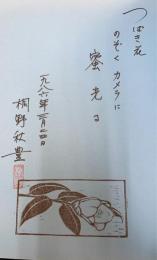 つばき花
のぞくカメラに
蜜光る
一九八六年三月二四日
桐野秋豊